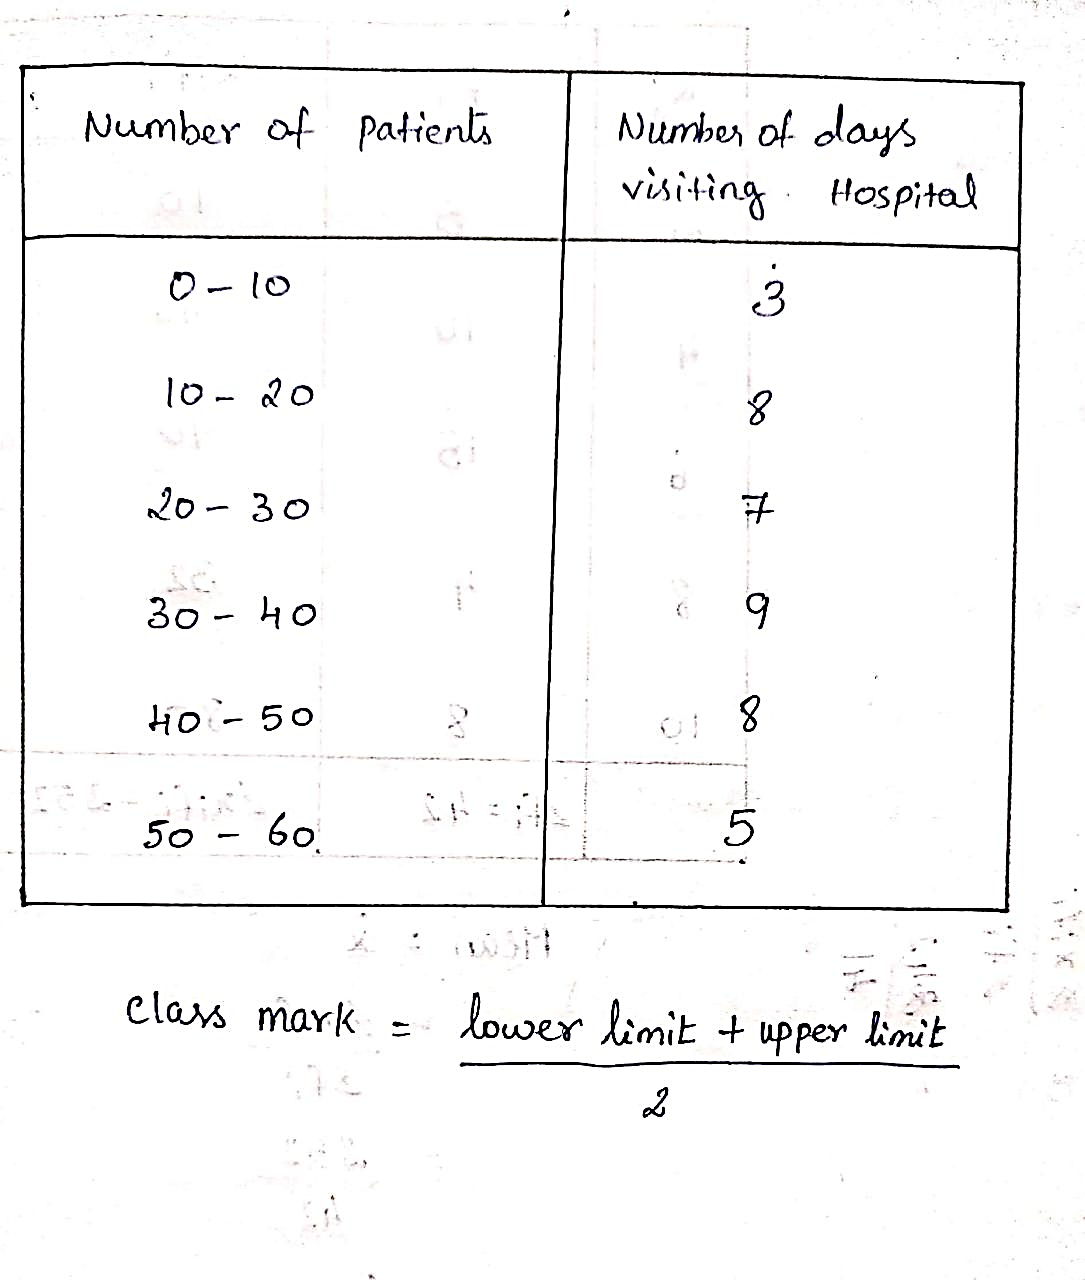 Number of patients
Number of days
visiting Hospital
0 - 10 3
10 - 20 8
20 - 30 7
30 - 40 9
40 - 50 8
50 - 60 5
class mark = lower limit + upper limit
2